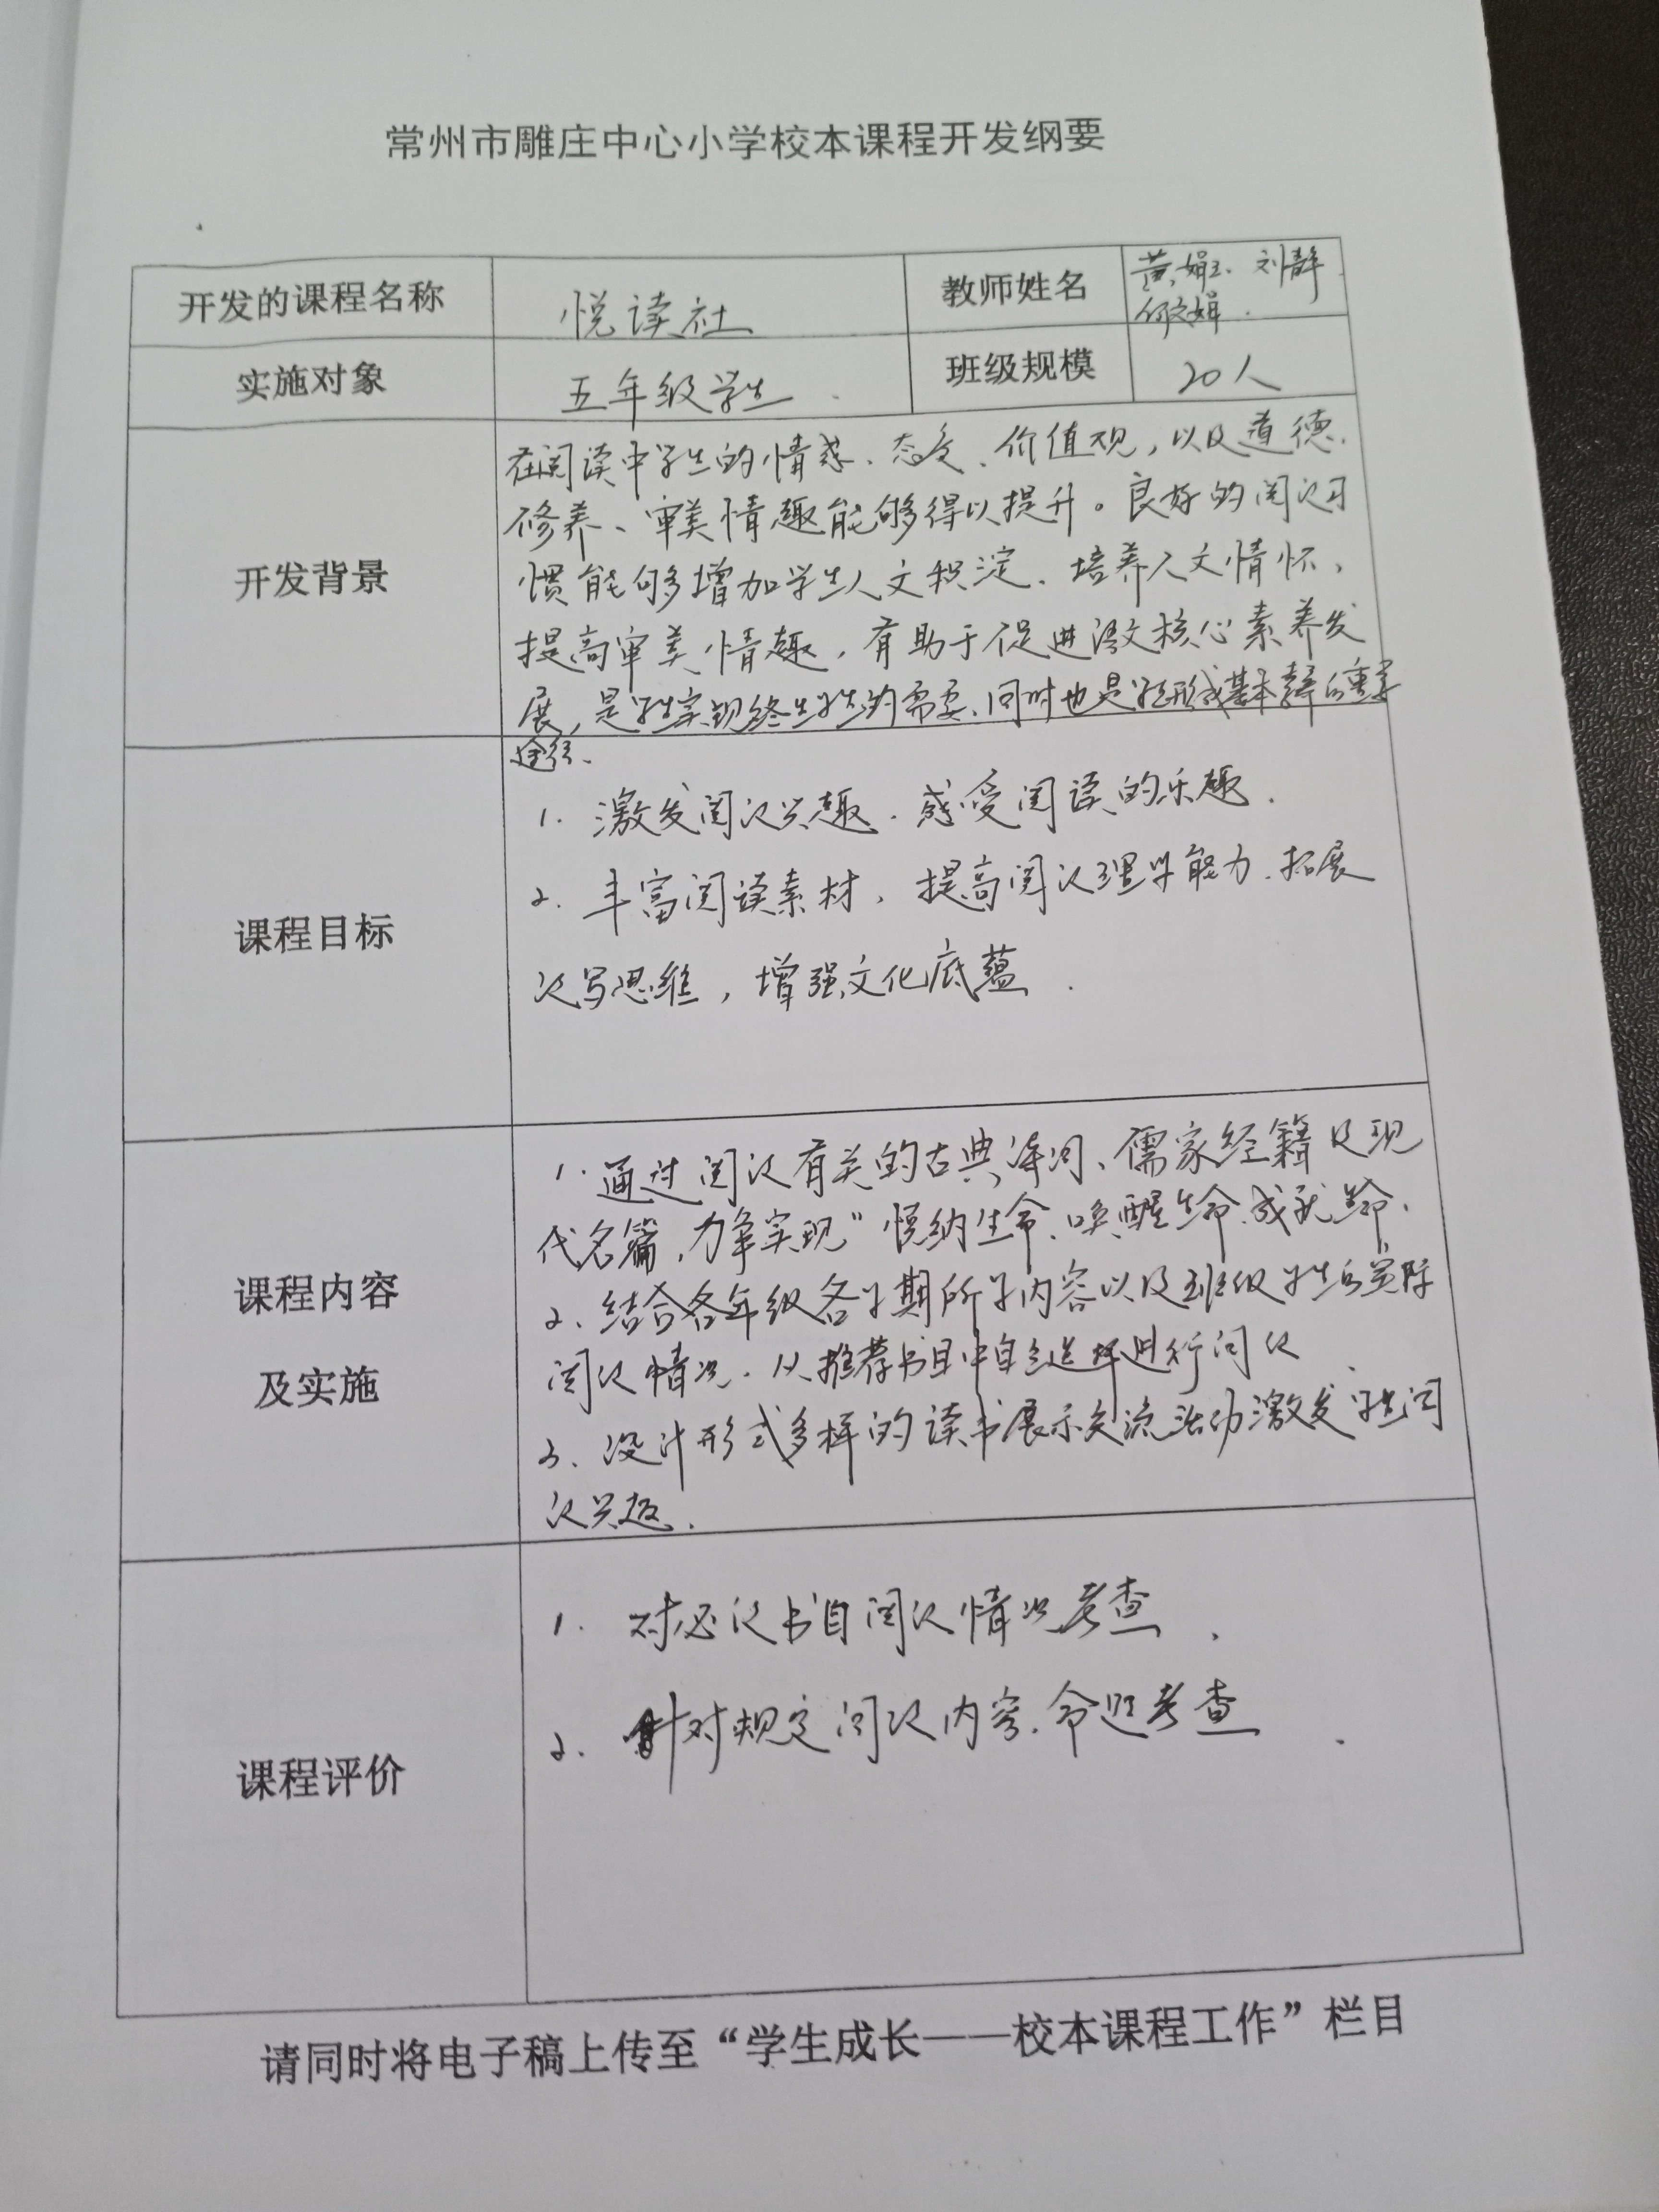 常州市雕庄中心小学校本课程开发纲要
开发的课程名称 悦读社 教师姓名 黄娟玉、刘静、
何文娟.
实施对象 五年级学生. 班级规模 20人
开发背景
在阅读中学生的情感、态度、价值观，以及道德
修养、审美情趣能够得以提升。良好的阅读习
惯能够增加学生人文积淀、培养人文情怀，
提高审美情趣，有助于促进语文核心素养发
展，是学生实现终生学习的需要、同时也是学生形成基本素养的重要
途径、
课程目标
1. 激发阅读兴趣、感受阅读的乐趣.
2. 丰富阅读素材，提高阅读理解能力、拓展
读写思维，增强文化底蕴.
课程内容
及实施
1. 通过阅读有关的古典诗词、儒家经籍及现
代名篇，力争实现"悦纳生命、唤醒生命、成就生命、
2、结合各年级各学期所学内容以及班级学生的实际
阅读情况、从推荐书目中自主选择进行阅读.
3、设计形式多样的读书展示交流活动激发学生阅
读兴趣.
课程评价
1. 对必读书目阅读情况考查.
2. 针对规定阅读内容、命题考查.
请同时将电子稿上传至“学生成长——校本课程工作”栏目